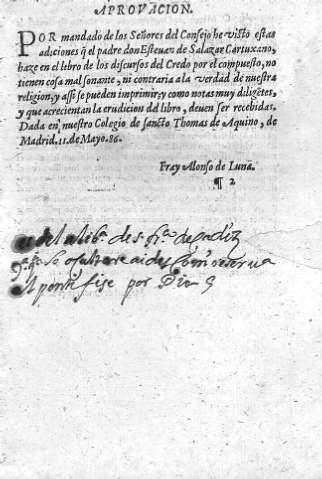 APROVACION.
POR mandado de los Señores del Consejo he visto estas
adiciones q̃ el padre don Esteuan de Salazar Cartuxano,
haze en el lebro de los discursos del Credo por el compuesto, no
tienen cosa mal sonante, ni contraria a la verdad de nuestra
religion, y assi se pueden imprimir, y como notas muy diligẽtes,
y que acrecientan la erudicion del libro, deuen ser recebidas.
Dada en nuestro Colegio de sancto Thomas de Aquino, de
Madrid. 11. de Mayo. 86.
Fray Alonso de Luna.
¶ 2
de la lib.ª de s. fr.co de cadiz
pontifise por